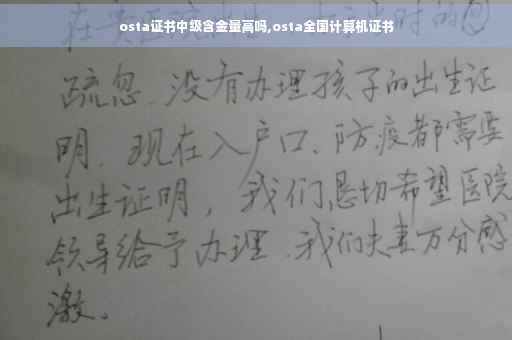 osta证书中级含金量高吗,osta全国计算机证书
疏忽、没有办理孩子的出生证
明、现在入户口、防疫都需要
出生证明，我们恳切希望医院
领导给予办理、我们夫妻万分感
激。